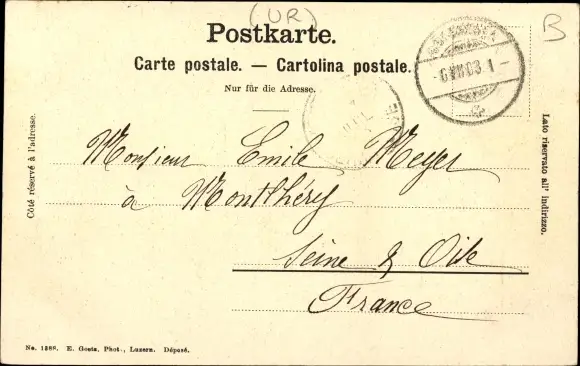 (UR)
B
Postkarte.
Carte postale. — Cartolina postale.
Nur für die Adresse.
Côté réservé à l'adresse.
Lato riservato all' indirizzo.
Monsieur Emile Meyer
à Montlhéry
Seine & Oise
France
No. 1388. E. Goetz, Phot., Luzern. Déposé.